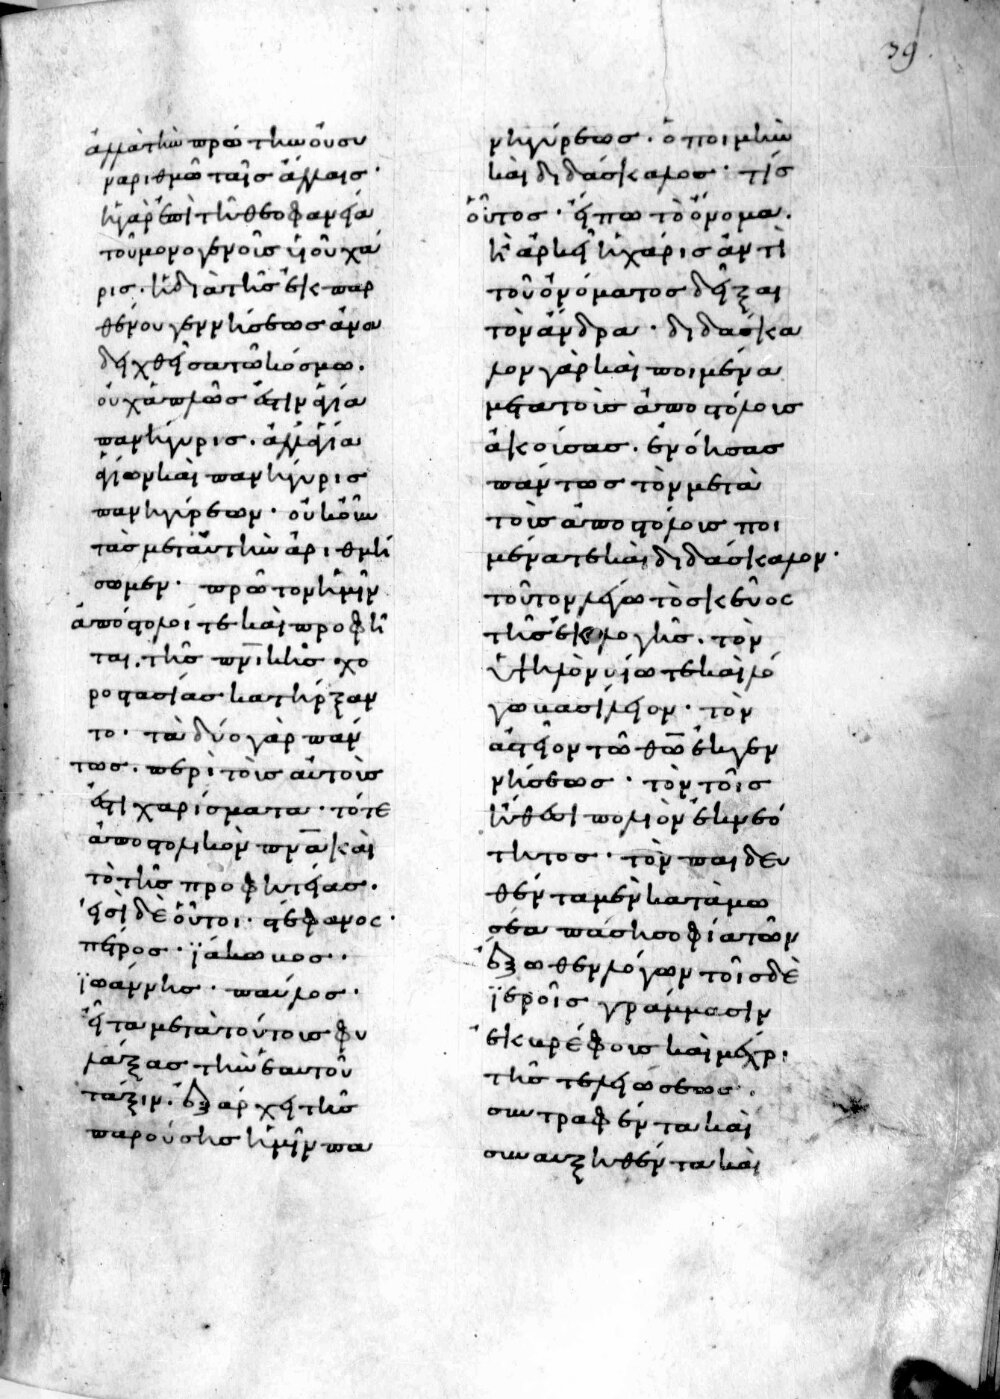 39
ἀλλὰ τὴν πρώτην οὐ συ
ναριθμῶ ταῖς ἄλλαις·
ἡ γὰρ ἐπὶ τῆ θεοφανεία
τοῦ μονογενοῦς υἱοῦ χά
ρις· ἡ διὰ τῆς ἐκ παρ
θένου γεννήσεως ἀνα
δειχθεῖσα τῶ κόσμω.
οὐχ ἁπλῶς ἐστιν ἁγία
πανήγυρις. ἀλλ' ἁγία
ἁγίων καὶ πανήγυρις
πανηγύρεων· οὐκοῦν
τὰς μετ' αὐτὴν ἀριθμή
σωμεν· πρῶτον ἡμῖν
ἀπόστολοί τε καὶ προφῆ
ται. τῆς πνικῆς χο
ροστασίας κατήρξαν
το· τὰ δύο γὰρ πάν
τως. περὶ τοὺς αὐτούς
ἐστι χαρίσματα· τό τε
ἀποστολικὸν πνα καὶ
τὸ τῆς προφητείας.
εἰσὶ δὲ οὗτοι· στέφανος·
πέτρος· ϊάκωβος·
ϊωάννης· παῦλος·
εἶτα μετὰ τούτοις φυ
λάξας τὴν ἑαυτοῦ
τάξιν. ἐξάρχει τῆς
παρούσης ἡμῖν πα
νηγύρεως. ὁ ποιμὴν
καὶ διδάσκαλος· τίς
οὗτος· εἴπω τὸ ὄνομα.
ἢ ἀρκεῖ ἡ χάρις ἀντὶ
τοῦ ὀνόματος δεῖξαι
τὸν ἄνδρα· διδάσκα
λον γὰρ καὶ ποιμένα
μετὰ τοὺς ἀποστόλους
ἀκούσας. ἐνόησας
πάντως τὸν μετὰ
τοὺς ἀποστόλους ποι
μένα τε καὶ διδάσκαλον·
τοῦτον λέγω τὸ σκεῦος
τῆς ἐκλογῆς. τὸν
ὑψηλὸν βίω τε καὶ λό
γω βασίλειον· τὸν
ἀστεῖον τῶ θῶ ἐκ γεν
νήσεως· τὸν τοῖς
ἤθεσι πολιὸν ἐκ νεό
τητος· τὸν παιδευ
θέντα μὲν κατὰ μω
σέα πάση σοφία τῶν
ἔξωθεν λόγων τοῖς δὲ
ϊεροῖς γράμμασιν
ἐκ βρέφους καὶ μέχρι
τῆς τελειώσεως.
συντραφέντα καὶ
συναυξηθέντα καὶ